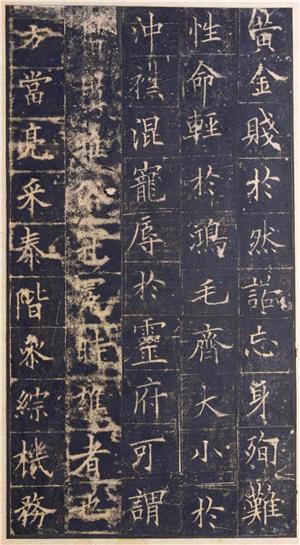 黃金賤於然諾忘身殉難
性命輕於鴻毛齊大小於
沖襟混寵辱於靈府可謂
雄者也
方當亮采泰階參綜機務